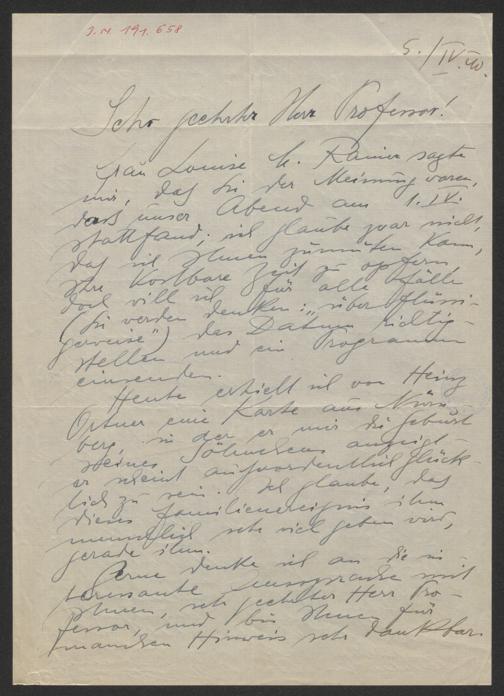 J.N. 191.658
5./IV.40.
Sehr geehrter Herr Professor!
Frau Louise M. Rainer sagte
mir, daß Sie der Meinung waren,
daß unser Abend am 1. IV.
stattfand; ich glaube zwar nicht,
daß ich Ihnen zumuten kann,
Ihre kostbare Zeit zu opfern
doch will ich für alle Fälle
(Sie werden denken: „überflüssi-
gerweise“) das Datum richtig-
stellen und ein Programm
einsenden.
Heute erhielt ich von Heinz
Ortner eine Karte aus Nürn-
berg, in der er mir die Geburt
seines Söhnchens anzeigt –
er scheint außerordentlich glück-
lich zu sein. Ich glaube, daß
dieses Familienereignis ihm
menschlich sehr viel geben wird,
gerade ihm.
Gerne denke ich an die in-
teressante Aussprache mit
Ihnen, sehr geehrter Herr Pro-
fessor, und bin Ihnen für
manchen Hinweis sehr dankbar.